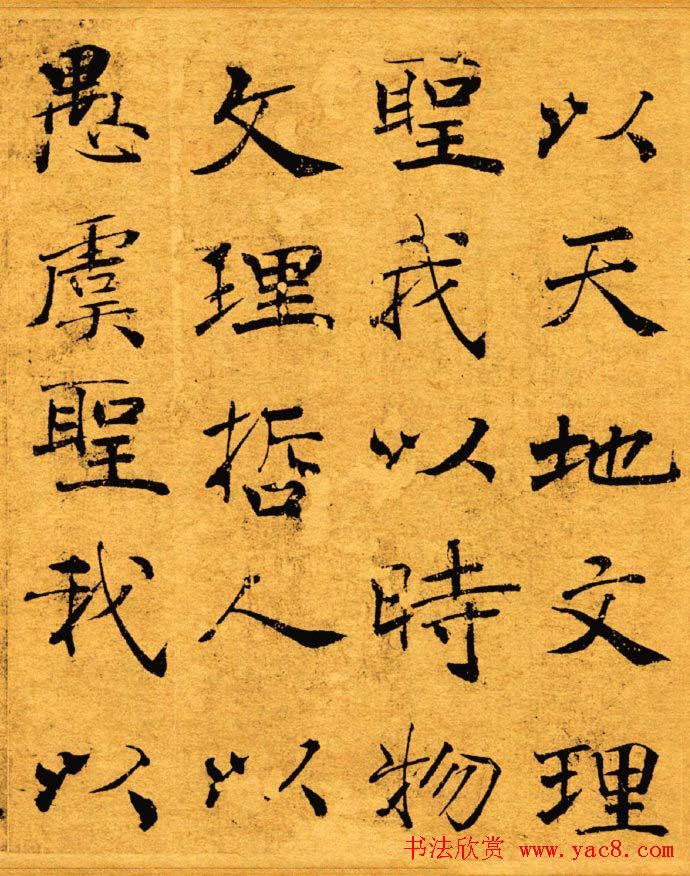 以天地文理
聖我以時物
文理哲人以
愚虞聖我以
书法欣赏 www.yac8.com